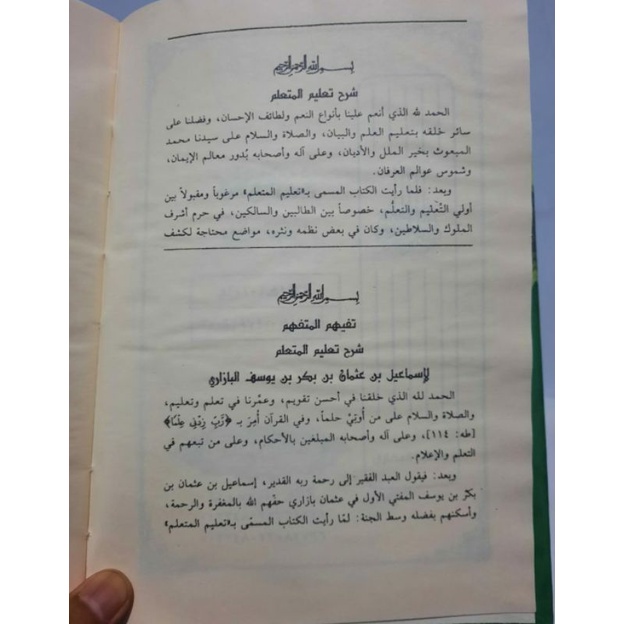 بسم الله الرحمن الرحيم
شرح تعليم المتعلم
الحمد لله الذي أنعم علينا بأنواع النعم ولطائف الإحسان، وفضلنا على
سائر خلقه بتعليم العلم والبيان، والصلاة والسلام على سيدنا محمد
المبعوث بخير الملل والأديان، وعلى آله وأصحابه بُدور معالم الإيمان،
وشموس عوالم العرفان.
وبعد: فلما رأيت الكتاب المسمى بـ«تعليم المتعلم» مرغوباً ومقبولاً بين
أولي التَّعليم والتعلُّم، خصوصاً بين الطالبين والسالكين، في حرم أشرف
الملوك والسلاطين، وكان في بعض نظمه ونثره، مواضع محتاجة لكشف
بسم الله الرحمن الرحيم
تفهيم المتفهم
شرح تعليم المتعلم
لإسماعيل بن عثمان بن بكر بن يوسف البازاري
الحمد لله الذي خلقنا في أحسن تقويم، وعمَّرنا في تعلم وتعليم،
والصلاة والسلام على من أُوتيَ حلماً، وفي القرآن أُمِرَ بـ ﴿رَّبِّ زِدْنِي عِلْمًا﴾
[طه: ١١٤]، وعلى آله وأصحابه المبلغين بالأحكام، وعلى من تبعهم في
التعلم والإعلام.
وبعد: فيقول العبد الفقير إلى رحمة ربه القدير، إسماعيل بن عثمان بن
بكر بن يوسف المفتي الأول في عثمان بازاري حفّهم الله بالمغفرة والرحمة،
وأسكنهم بفضله وسط الجنة: لمّا رأيت الكتاب المسمّى بـ«تعليم المتعلم»